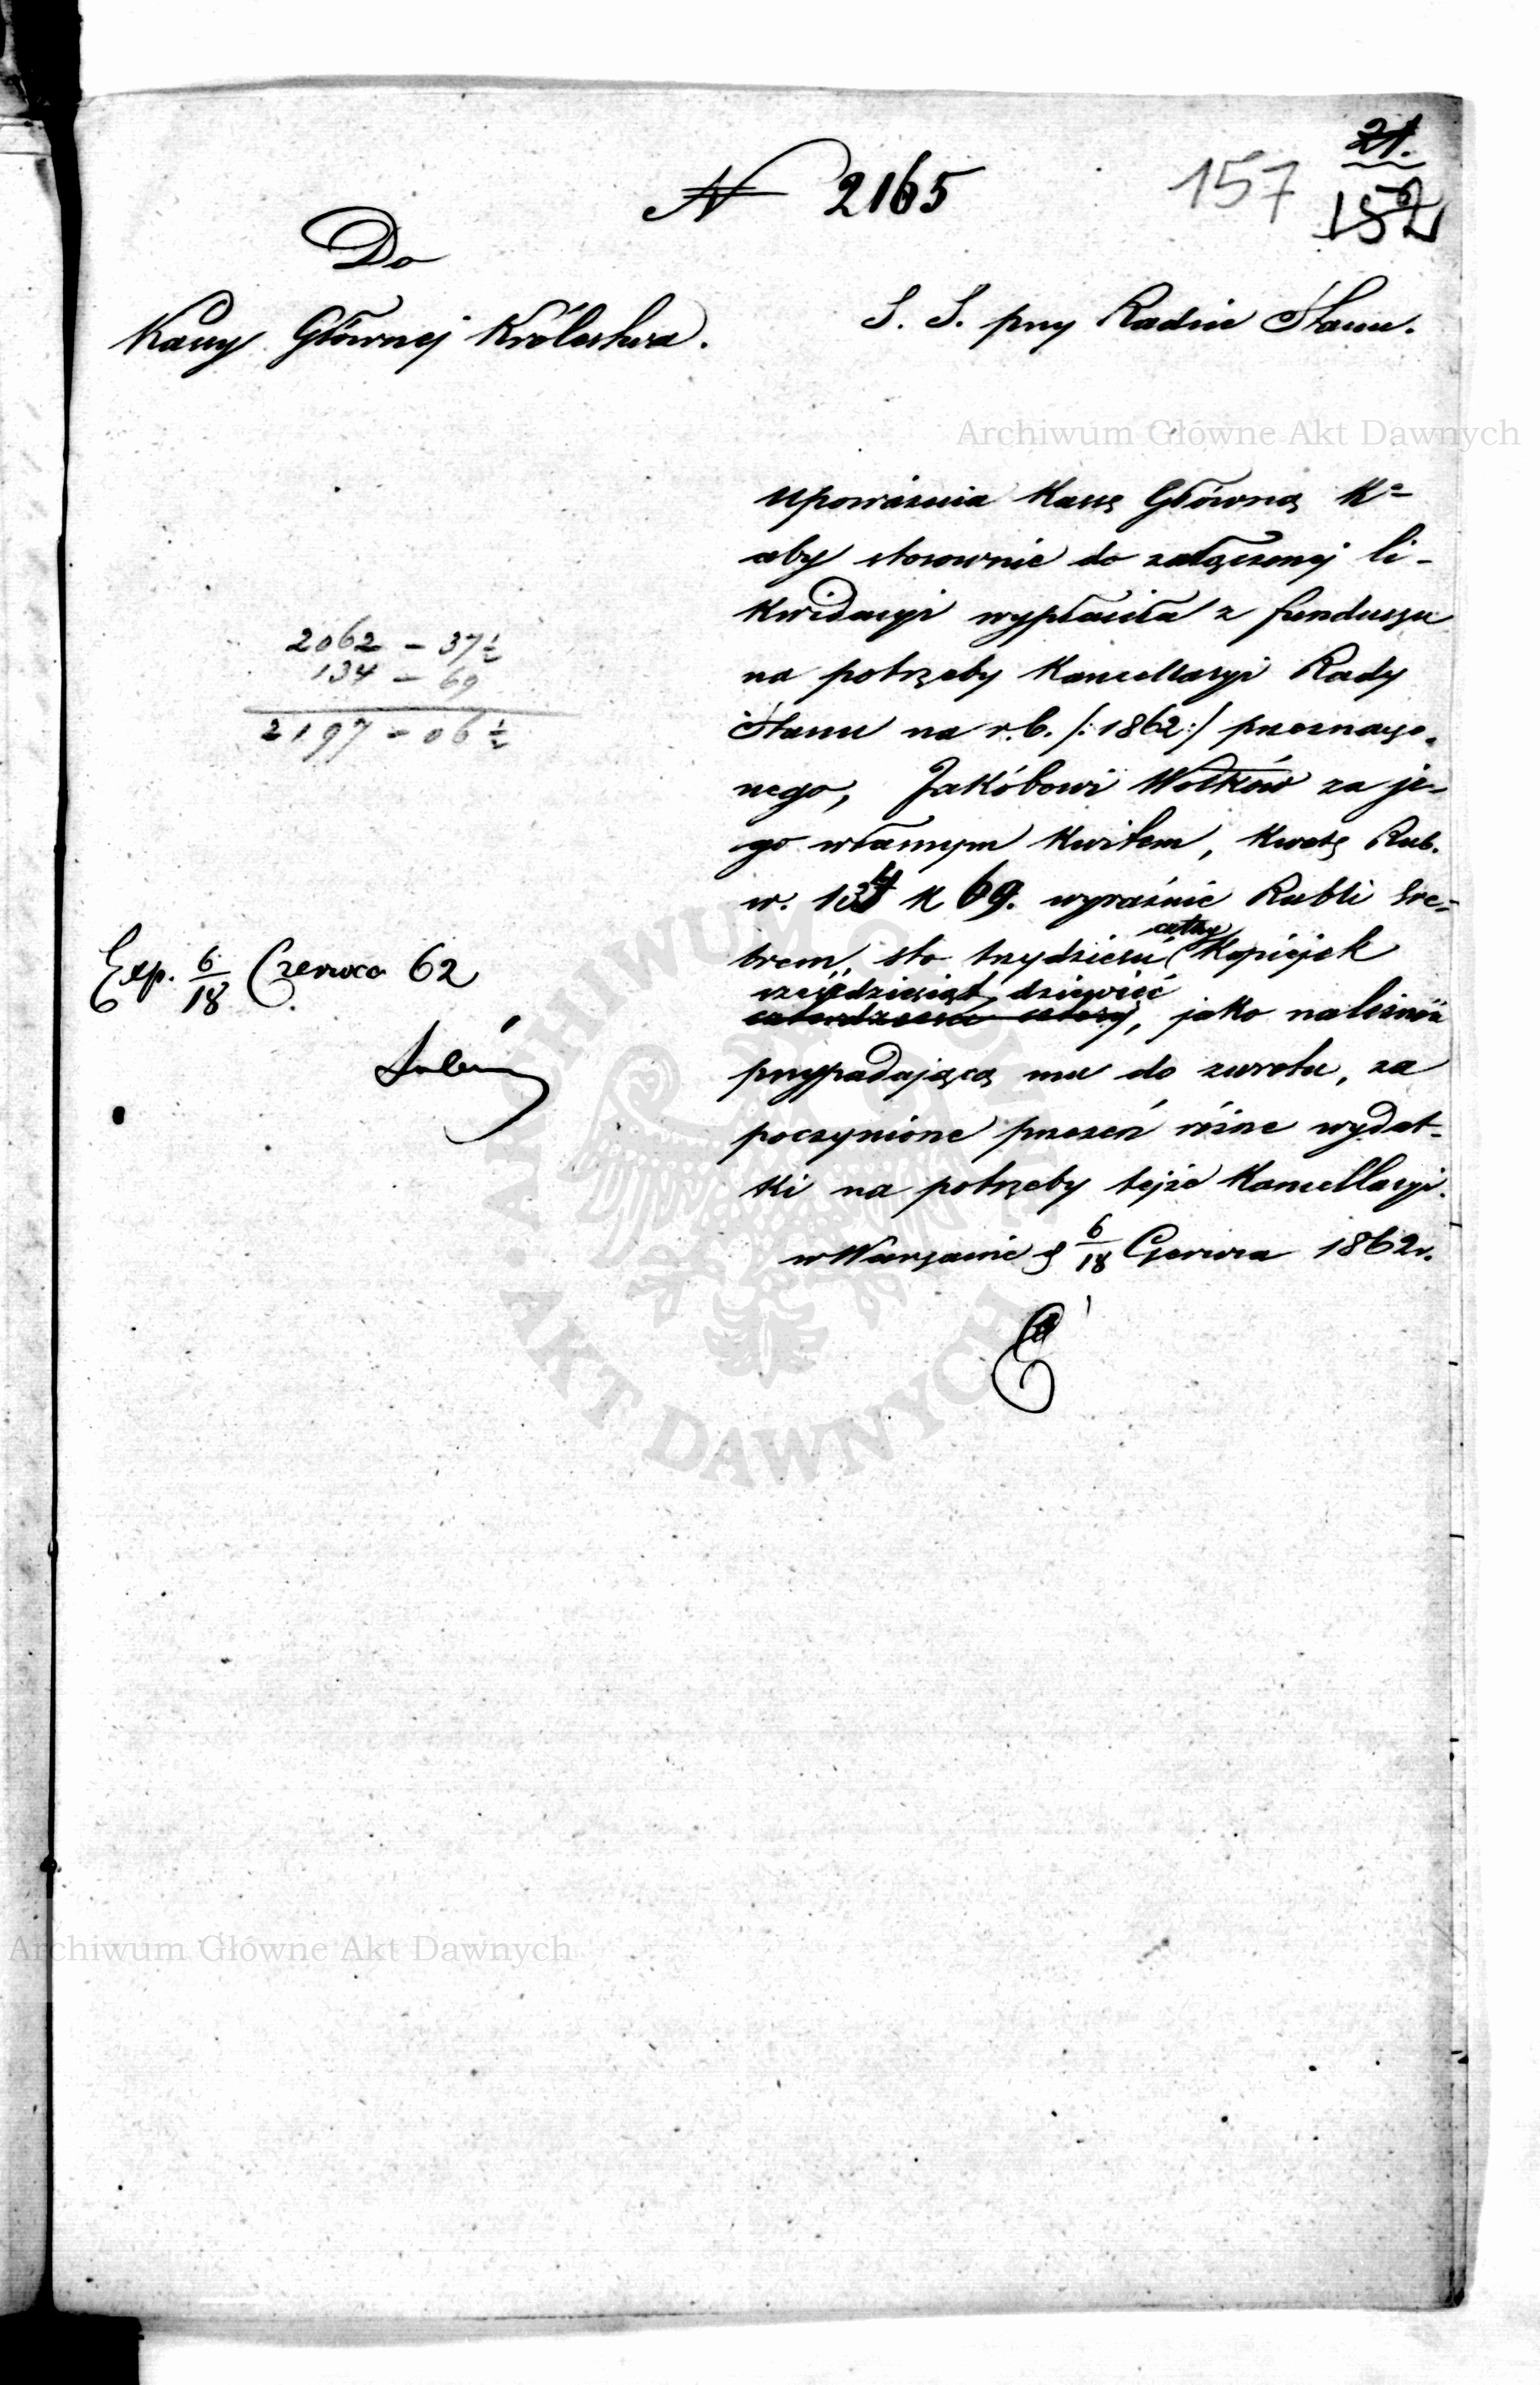 21.
N 2165
157
152
Do
Kassy Głównej Królestwa.
S. S. przy Radzie Stanu.
Archiwum Główne Akt Dawnych
Upoważnia Kassę Główną Kᵃ
aby stosownie do załączonej li-
kwidacyi wypłaciła z funduszu
na potrzeby Kancellaryi Rady
Stanu na r.b. /:1862:/ przeznaczo-
nego, Jakóbowi Wołków za je-
go własnym kwitem, kwotę Rub.
sr. 134 k 69. wyraźnie Rubli sre-
brem, sto trzydzieści cztery Kopiejek
sześćdziesiąt dziewięć
czterdzieści cztery, jako należność
przypadającą mu do zwrotu, za
poczynione przezeń różne wydat-
ki na potrzeby tejże Kancellaryi.
w Warszawie d 6/18 Czerwca 1862 r.
2062 - 37½
134 - 69
2197 - 06½
Exp. 6/18 Czerwca 62
ARCHIWUM GŁÓWNE
AKT DAWNYCH
Archiwum Główne Akt Dawnych